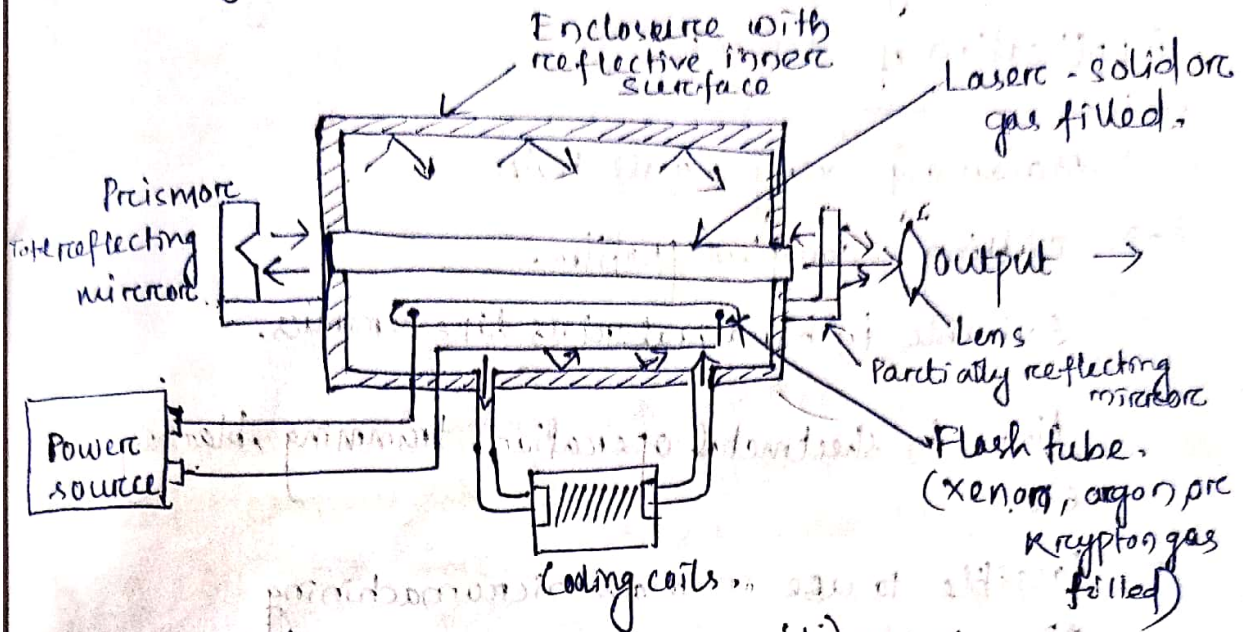 Enclosure with
reflective inner
surface
Laser - solid or
gas filled.
Prism or
reflecting
mirror
output
Lens
Partially reflecting
mirror
Power
source
Flash tube.
(xenon, argon or
Krypton gas
filled)
Cooling coils.